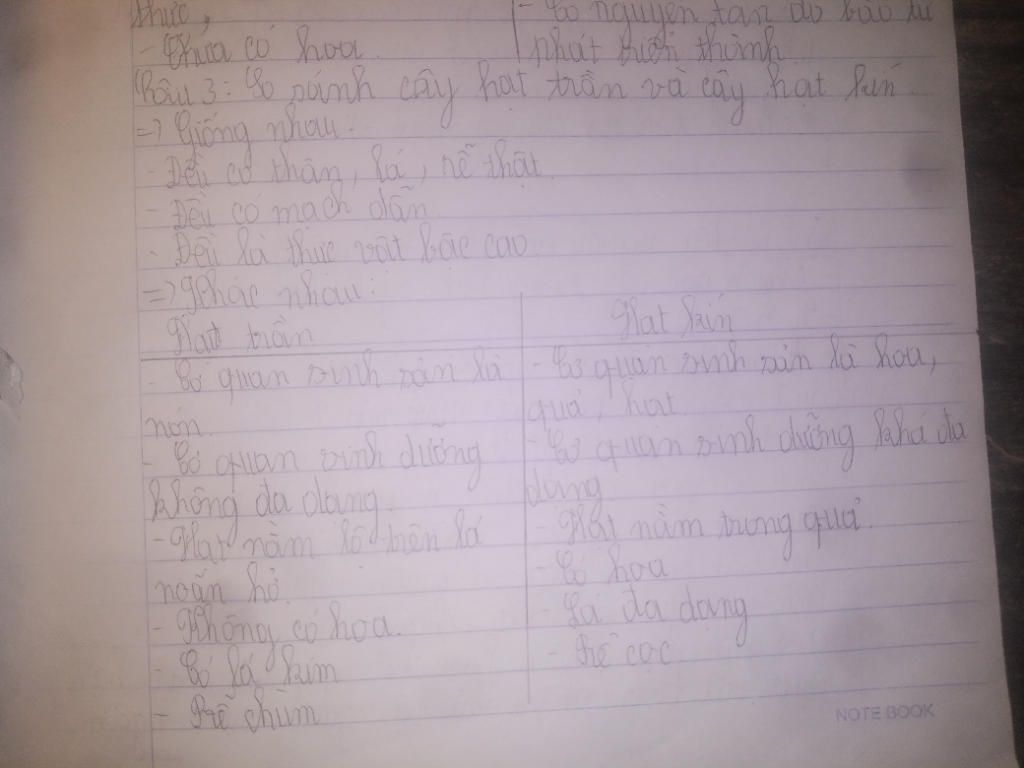 thức,
- Chưa có hoa.
- Có nguyên tản do bào tử
phát triển thành
Câu 3: So sánh cây hạt trần và cây hạt kín.
=> Giống nhau:
- Đều có thân, lá, rễ thật.
- Đều có mạch dẫn
- Đều là thực vật bậc cao.
=> Khác nhau:
Hạt trần
- Cơ quan sinh sản là
nón.
- Cơ quan sinh dưỡng
không đa dạng.
- Hạt nằm lộ trên lá
noãn hở.
- Không có hoa.
- Có lá kim
- Rễ chùm
Hạt kín
- Cơ quan sinh sản là hoa,
quả, hạt
- Cơ quan sinh dưỡng khá đa
dạng
- Hạt nằm trong quả.
- Có hoa
- Lá đa dạng
- Rễ cọc
NOTE BOOK